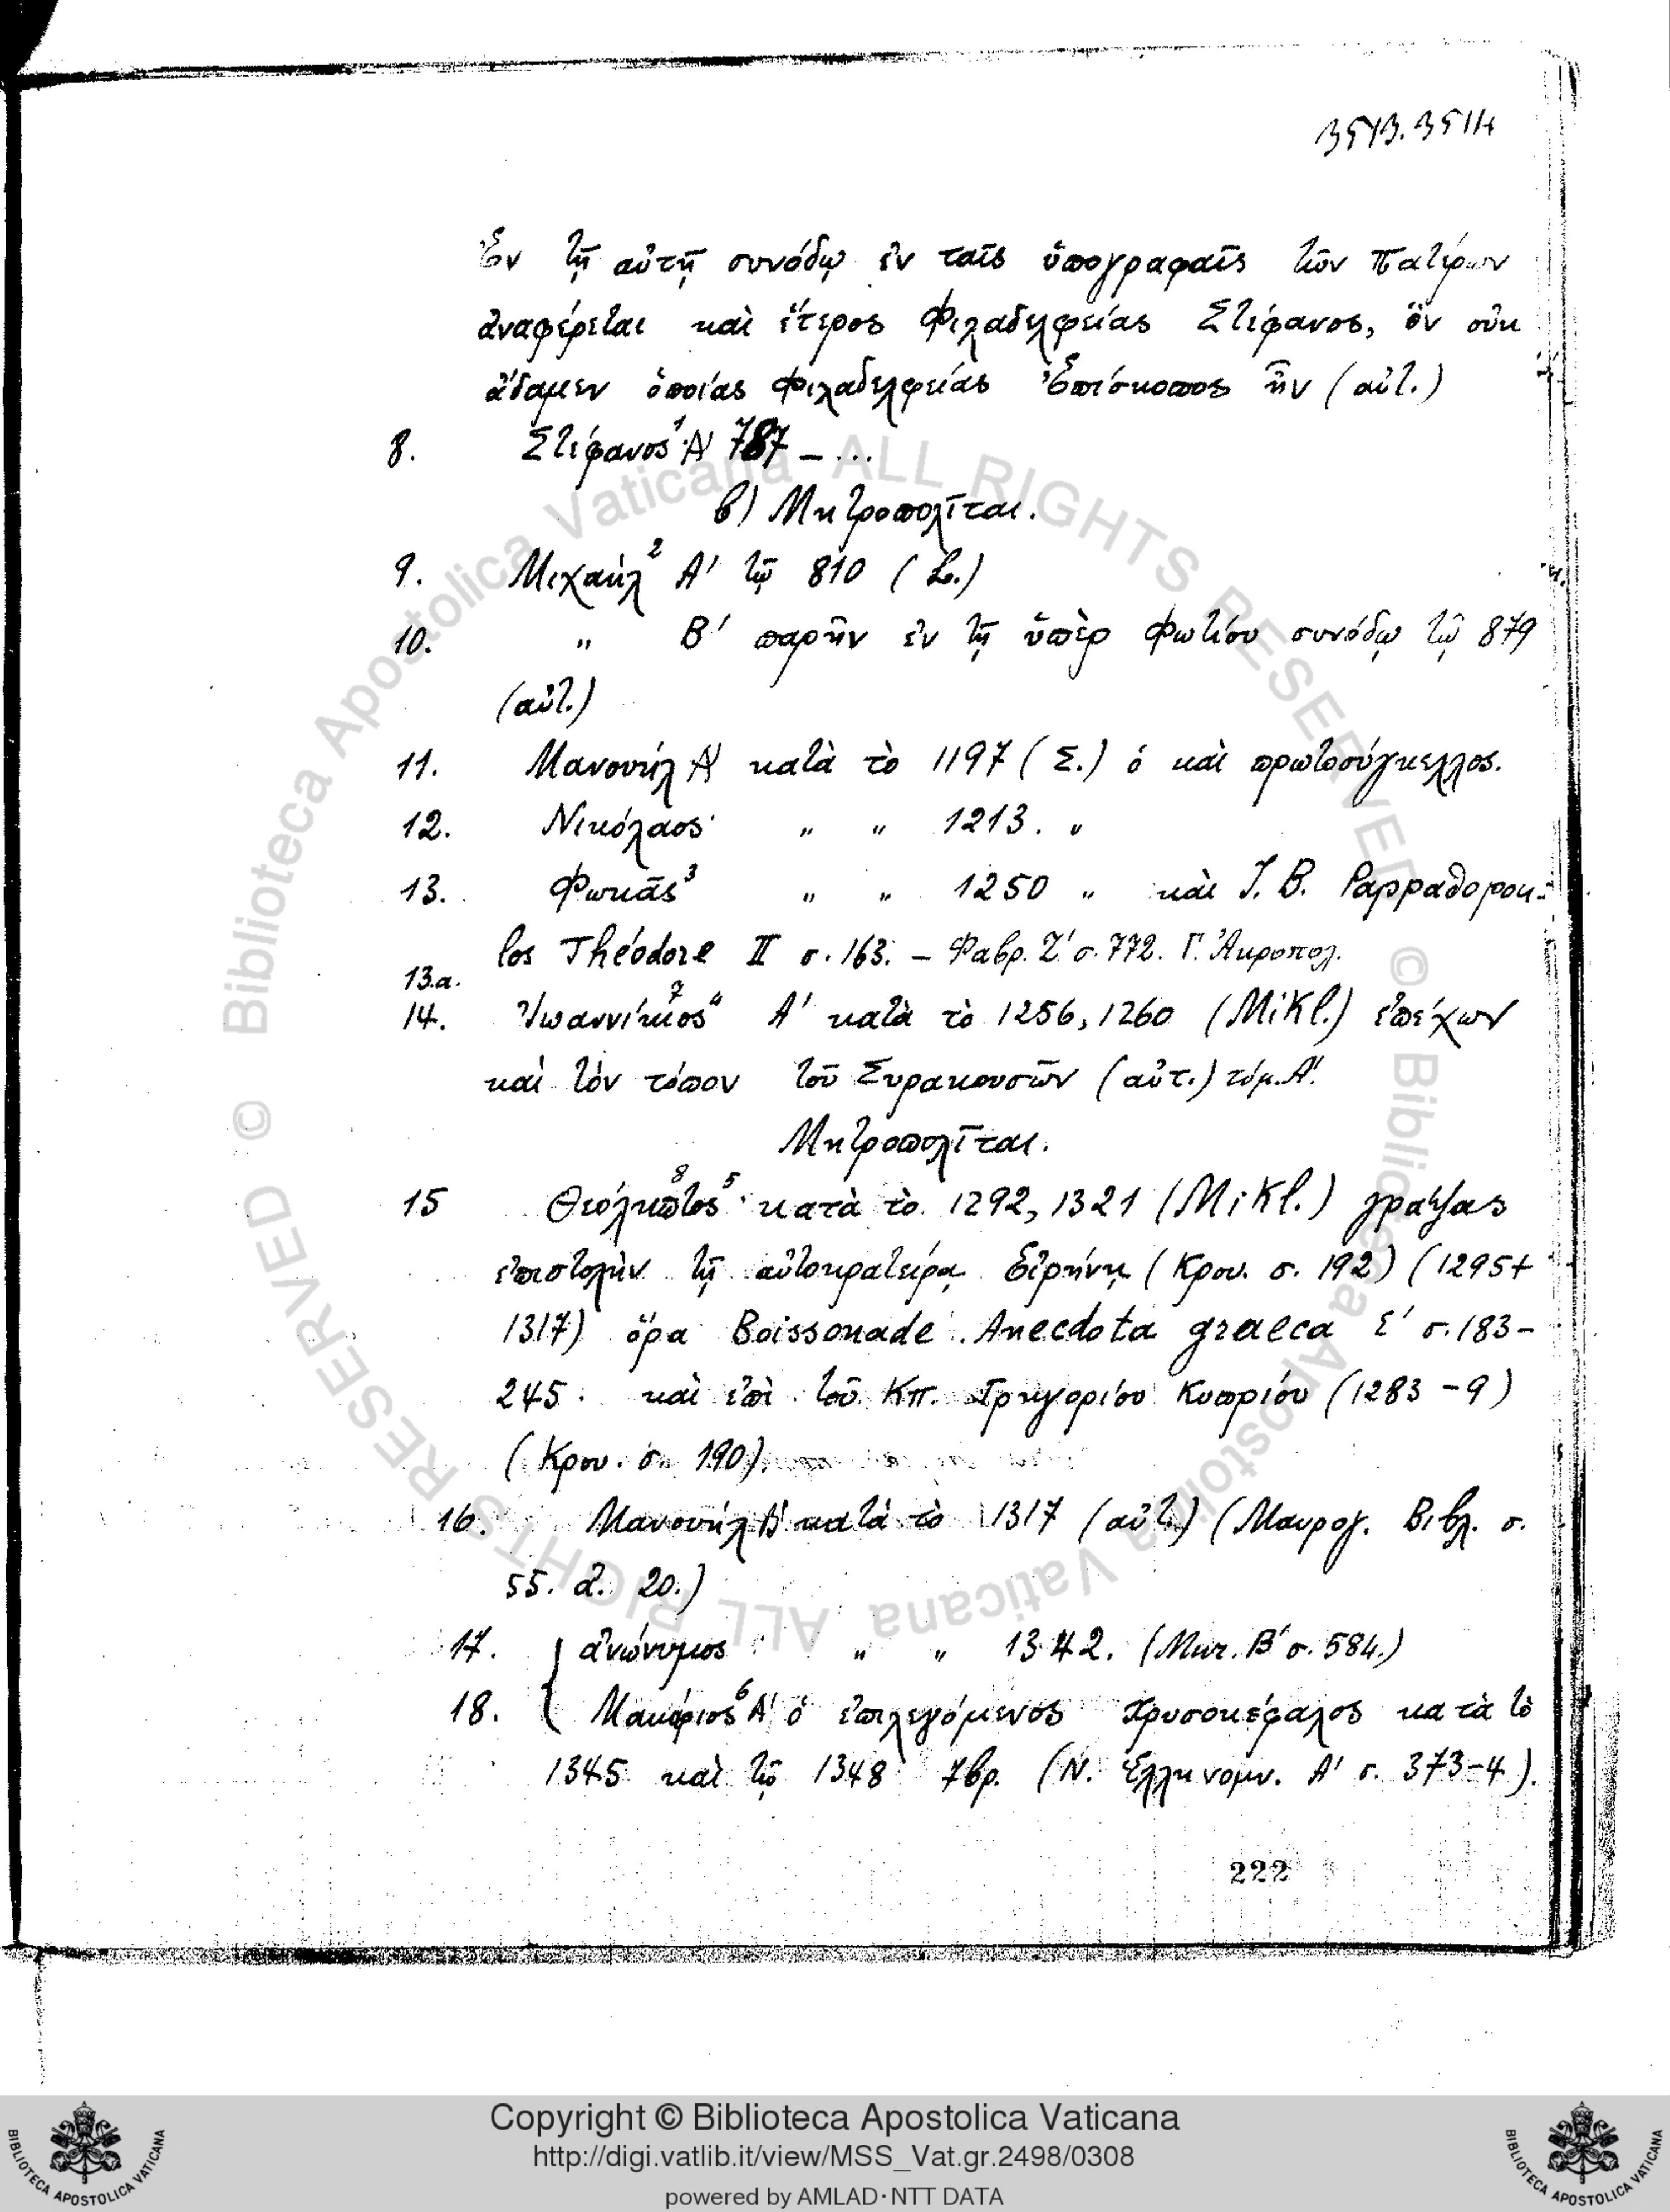 3513. 3514
Ἐν τῇ αὐτῇ συνόδῳ ἐν ταῖς ὑπογραφαῖς τῶν Πατέρων
ἀναφέρεται καὶ ἕτερος Φιλαδελφείας Στέφανος, ὃν οὐκ
οἴδαμεν ὁποίας Φιλαδελφείας Ἐπίσκοπος ἦν (αὐτ.)
8. Στέφανος¹ Α' 787 – ...
β) Μητροπολῖται.
9. Μιχαήλ² Α' τῷ 810 (Le.)
10. " Β' παρῆν ἐν τῇ ὑπὲρ Φωτίου συνόδῳ τῷ 879
(αὐτ.)
11. Μανουήλ Α' κατὰ τὸ 1197 (Σ.) ὁ καὶ πρωτοσύγκελλος.
12. Νικόλαος " " 1213. "
13. Φωκᾶς³ " " 1250 " καὶ J. B. Pappadopou-
los Théodore II σ. 163. – Φαβρ. Ζ' σ. 772. Γ. Ἀκροπολ.
13.α.
14. Ἰωαννίκιος⁴ ⁷ Α' κατὰ τὸ 1256, 1260 (Mikl.) ἐπέχων
καὶ τὸν τόπον τοῦ Συρακουσῶν (αὐτ.) τόμ. Α'.
Μητροπολῖται.
15 Θεόληπτος⁸ ⁵ κατὰ τὸ 1292, 1321 (Mikl.) γράψας
ἐπιστολὴν τῇ αὐτοκρατείρᾳ Εἰρήνῃ (Κρου. σ. 192) (1295+
1317) ὅρα Boissonade Anecdota graeca Ε' σ. 183-
245. καὶ ἐπὶ τοῦ Κπ. Γρηγορίου Κυπρίου (1283-9)
(Κρου. σ. 190)
16. Μανουήλ Β' κατὰ τὸ 1317 (αὐτ.) (Μαυρογ. Βιβλ. σ.
55. 20.)
17. ἀνώνυμος " " 1342. (Μικ. Β' σ. 584.)
18. Μακάριος⁶ Α' ὁ ἐπιλεγόμενος Χρυσοκέφαλος κατὰ τὸ
1345 καὶ τῷ 1348 7βρ. (Ν. Ἑλληνομν. Α' σ. 373-4).
222
© Biblioteca Apostolica Vaticana ALL RIGHTS RESERVED
© Biblioteca Apostolica Vaticana ALL RIGHTS RESERVED
Copyright © Biblioteca Apostolica Vaticana
http://digi.vatlib.it/view/MSS_Vat.gr.2498/0308
powered by AMLAD·NTT DATA
BIBLIOTECA APOSTOLICA VATICANA
BIBLIOTECA APOSTOLICA VATICANA